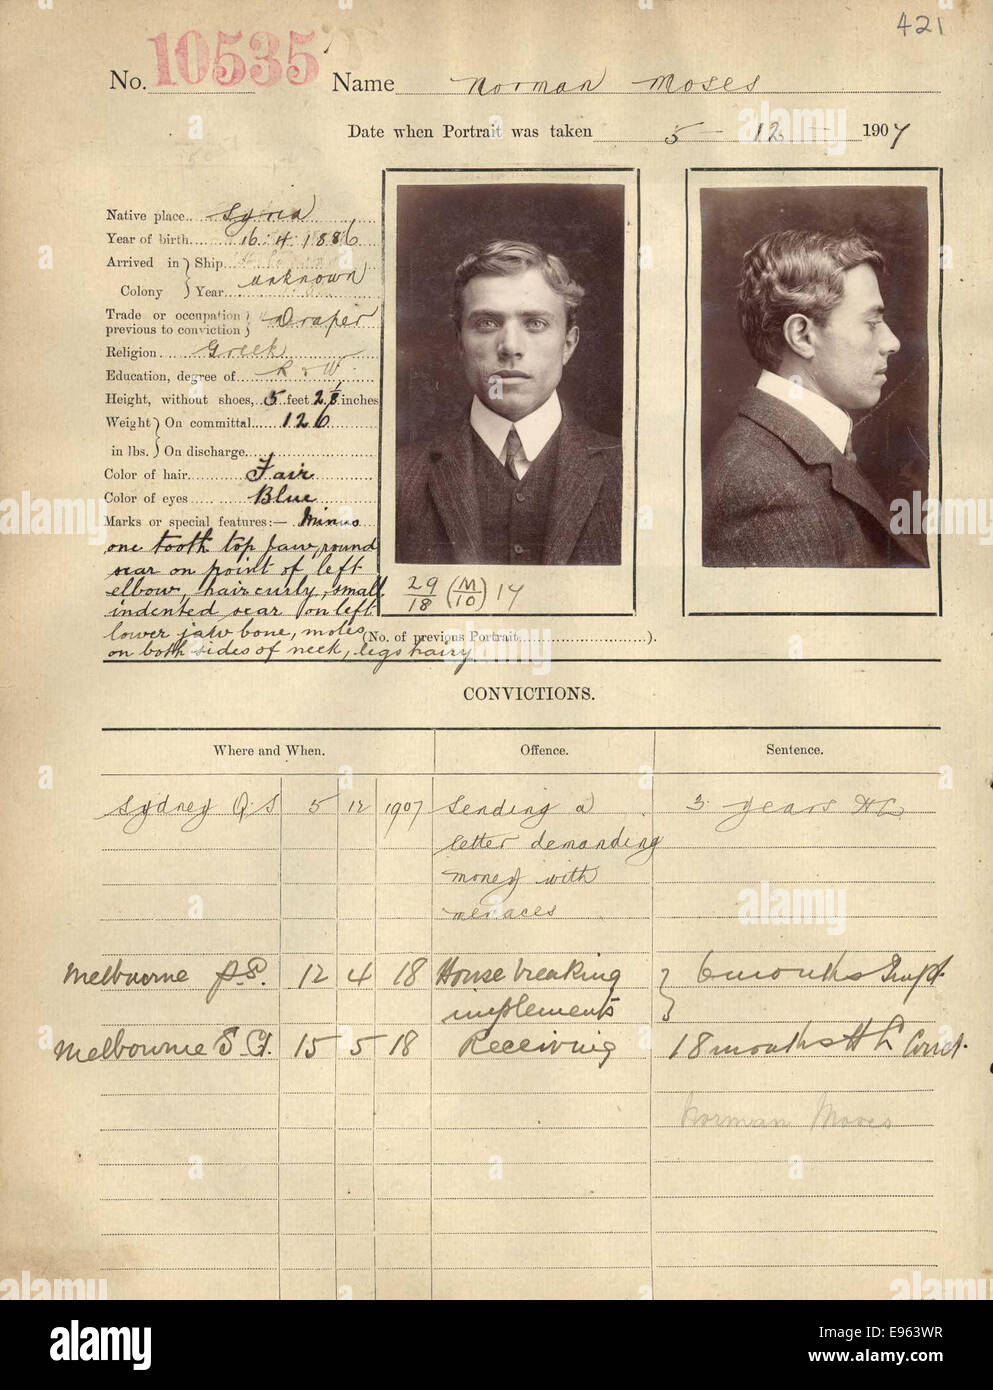 421
No. 10535 Name Norman Moses
Date when Portrait was taken 5 - 12 - 1907
Native place Syria
Year of birth 16.4.1886
Arrived in Colony } Ship
Year unknown
Trade or occupation previous to conviction } Draper
Religion Greek
Education, degree of R & W
Height, without shoes, 5 feet 2 7/8 inches
Weight in lbs. } On committal 126
On discharge
Color of hair Fair
Color of eyes Blue
Marks or special features:— Minus
one tooth top jaw, round
scar on point of left
elbow, hair curly, small
indented scar on left
lower jaw bone, moles
on both sides of neck, legs hairy
29/18 (M/10) 14
(No. of previous Portrait ).
CONVICTIONS.
Where and When. Offence. Sentence.
Sydney Q.S 5 12 1907 Sending a 3 years HL
letter demanding
money with
menaces
Melbourne P.S. 12 4 18 House breaking } 6 months Impt.
implements }
Melbourne S. Ct. 15 5 18 Receiving 18 months HL Conct.
Norman Moses
alamy
Image ID: E963WR
www.alamy.com